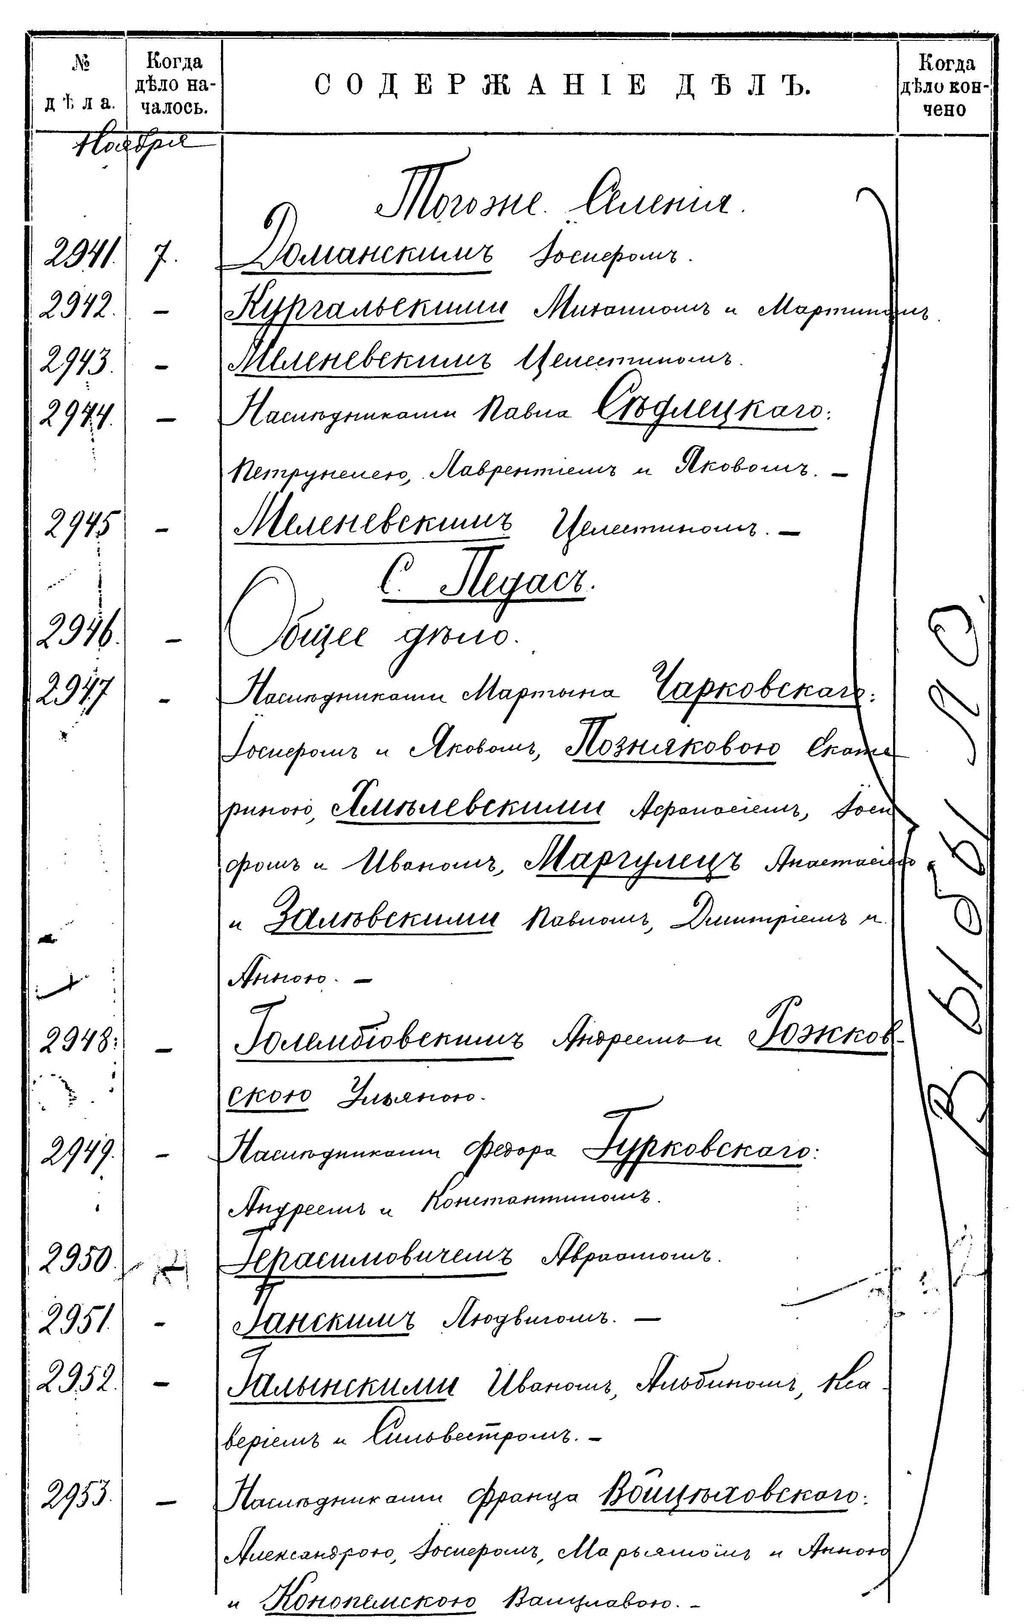 № дѣла.
Когда дѣло началось.
СОДЕРЖАНІЕ ДѢЛЪ.
Когда дѣло кончено
Ноября
Тогоже Селенія.
2941. 7. Доманскимъ Іосифомъ.
2942. – Кургальскими Михаиломъ и Мартиномъ.
2943. – Меленевскимъ Целестиномъ.
2944. – Наслѣдниками Павла Сѣдлецкаго:
Петрунелею, Лаврентіемъ и Яковомъ. –
2945 – Меленевскимъ Целестиномъ. –
С. Педасъ.
2946. – Общее дѣло.
2947 – Наслѣдниками Мартына Чарковскаго:
Іосифомъ и Яковомъ, Позняковою Екате
риною, Хмѣлевскими Афанасіемъ, Іоси
фомъ и Иваномъ, Маргулецъ Анастасіею
и Залѣвскими Павломъ, Дмитріемъ и
Анною. –
2948. – Голембіовскимъ Андреемъ и Рожков-
скою Ульяною.
2949. – Наслѣдниками Федора Гурковскаго:
Андреемъ и Константиномъ.
2950. Герасимовичемъ Авраамомъ.
2951. – Ганскимъ Людвигомъ. –
2952. – Галынскими Иваномъ, Альбиномъ, Кса
веріемъ и Сильвестромъ. –
2953. – Наслѣдниками Франца Войцѣховскаго:
Александрою, Іосифомъ, Марьяномъ и Анною
и Конопемскою Вацлавою. –
ВЫБЫЛО.